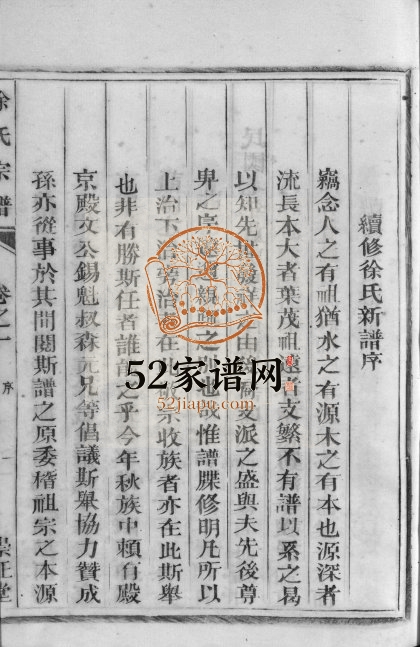 續修徐氏新譜序
竊念人之有祖猶水之有源木之有本也源深者
流長本大者葉茂祖遠者支繁不有譜以系之曷
以知先世發祥之由支派之盛與夫先後尊
卑之序親也故惟譜牒修明凡所以
上治下治旁治者在此收族者亦在此斯舉
也非有勝斯任者誰之乎今年秋族中賴有殿
京殿文公錫魁叔森元兄等倡議斯舉協力贊成
孫亦從事於其間閱斯譜之原委稽祖宗之本源
徐氏宗譜
卷之一
序
一
崇正堂
52家谱网
52jiapu.com